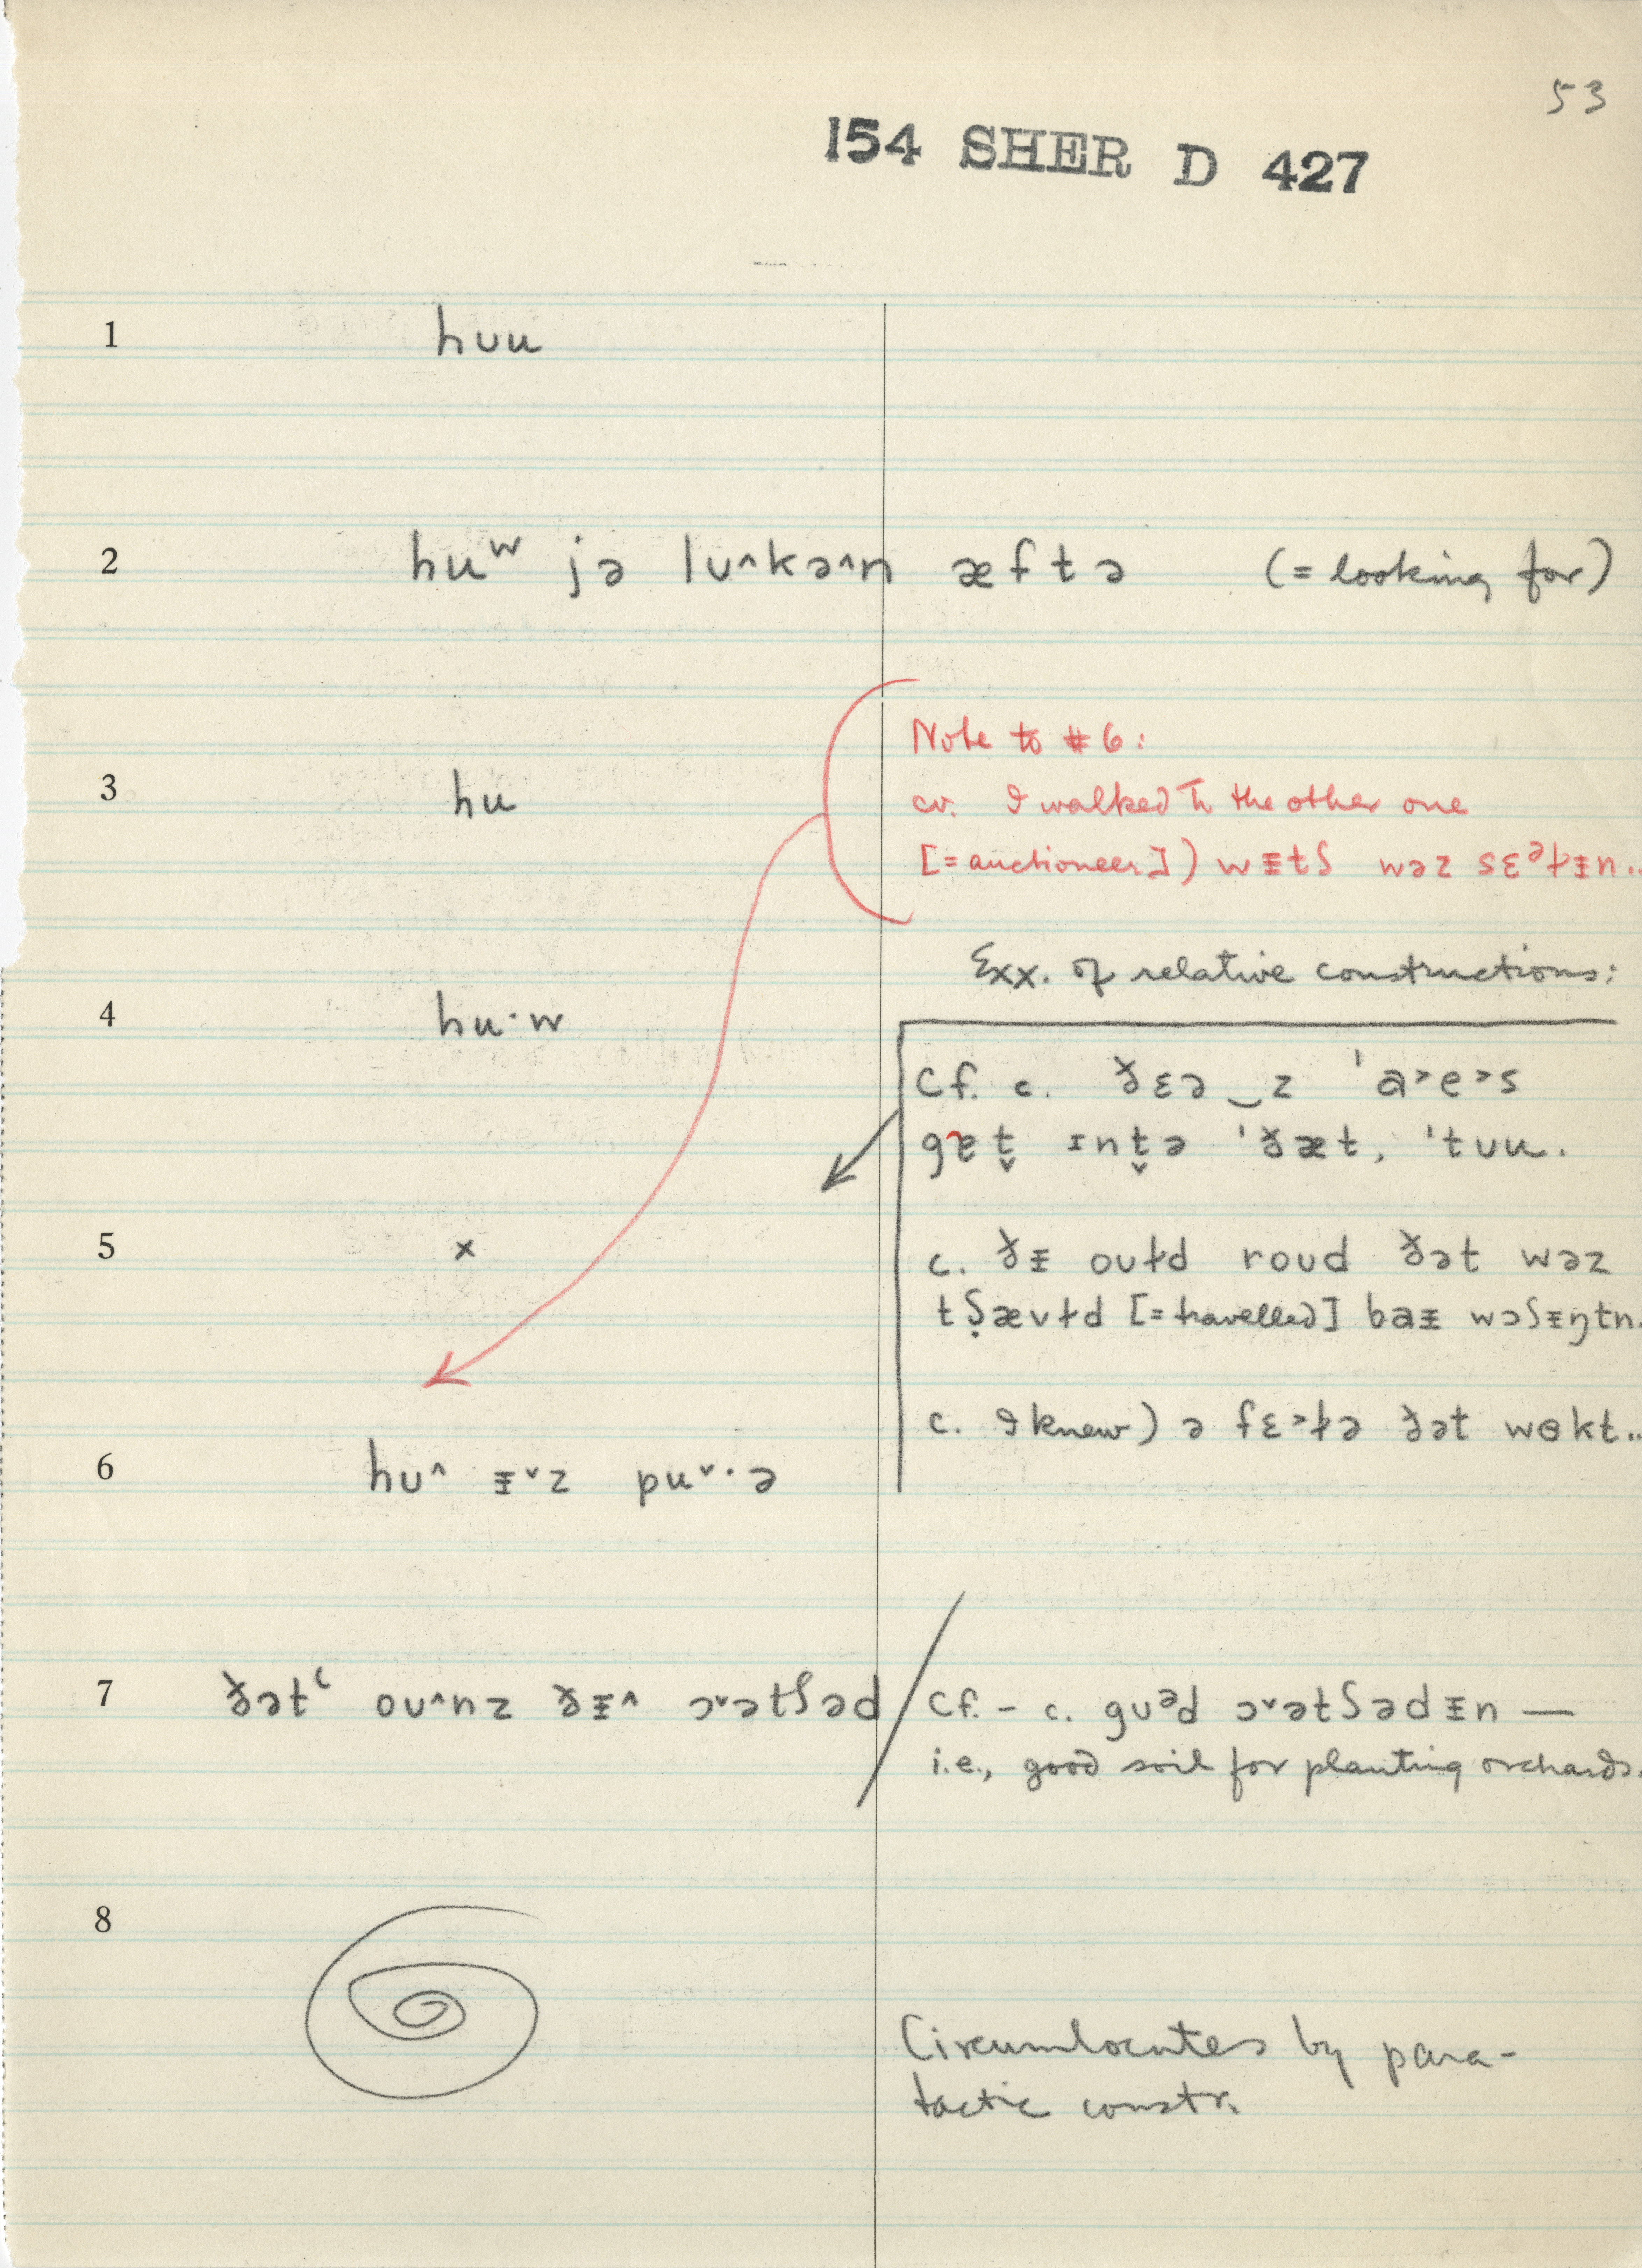 53
154 SHER D 427
1 hʊu
2 huʷ jə lʊ^kə^n æftə (= looking for)
Note to #6:
3 hu
cv. I walked to the other one
[= auctioneer]) wᵻtʃ wəz sɛᵊɫᵻn..
Exx. of relative constructions:
4 hu·w
Cf. c. ðɛə‿z ˈa˃e˃s
gɐt̬ ɪnt̬ə ˈðæt, ˈtʊu.
5 x
c. ðᵻ oʊɫd roʊd ðət wəz
tʃ̣ævɫd [= travelled] baᵻ wɔʃᵻŋtn.
c. I knew) ə fɛ˃ɫə ðət wɵkt..
6 hʊ^ ᵻˇz puˇ·ə
7 ðətʿ oʊ^nz ðᵻ^ ɔˇətʃəd / Cf. - c. gʊᵊd ɔˇətʃədᵻn —
i.e., good soil for planting orchards.
8
Circumlocutes by para-
tactic constr.